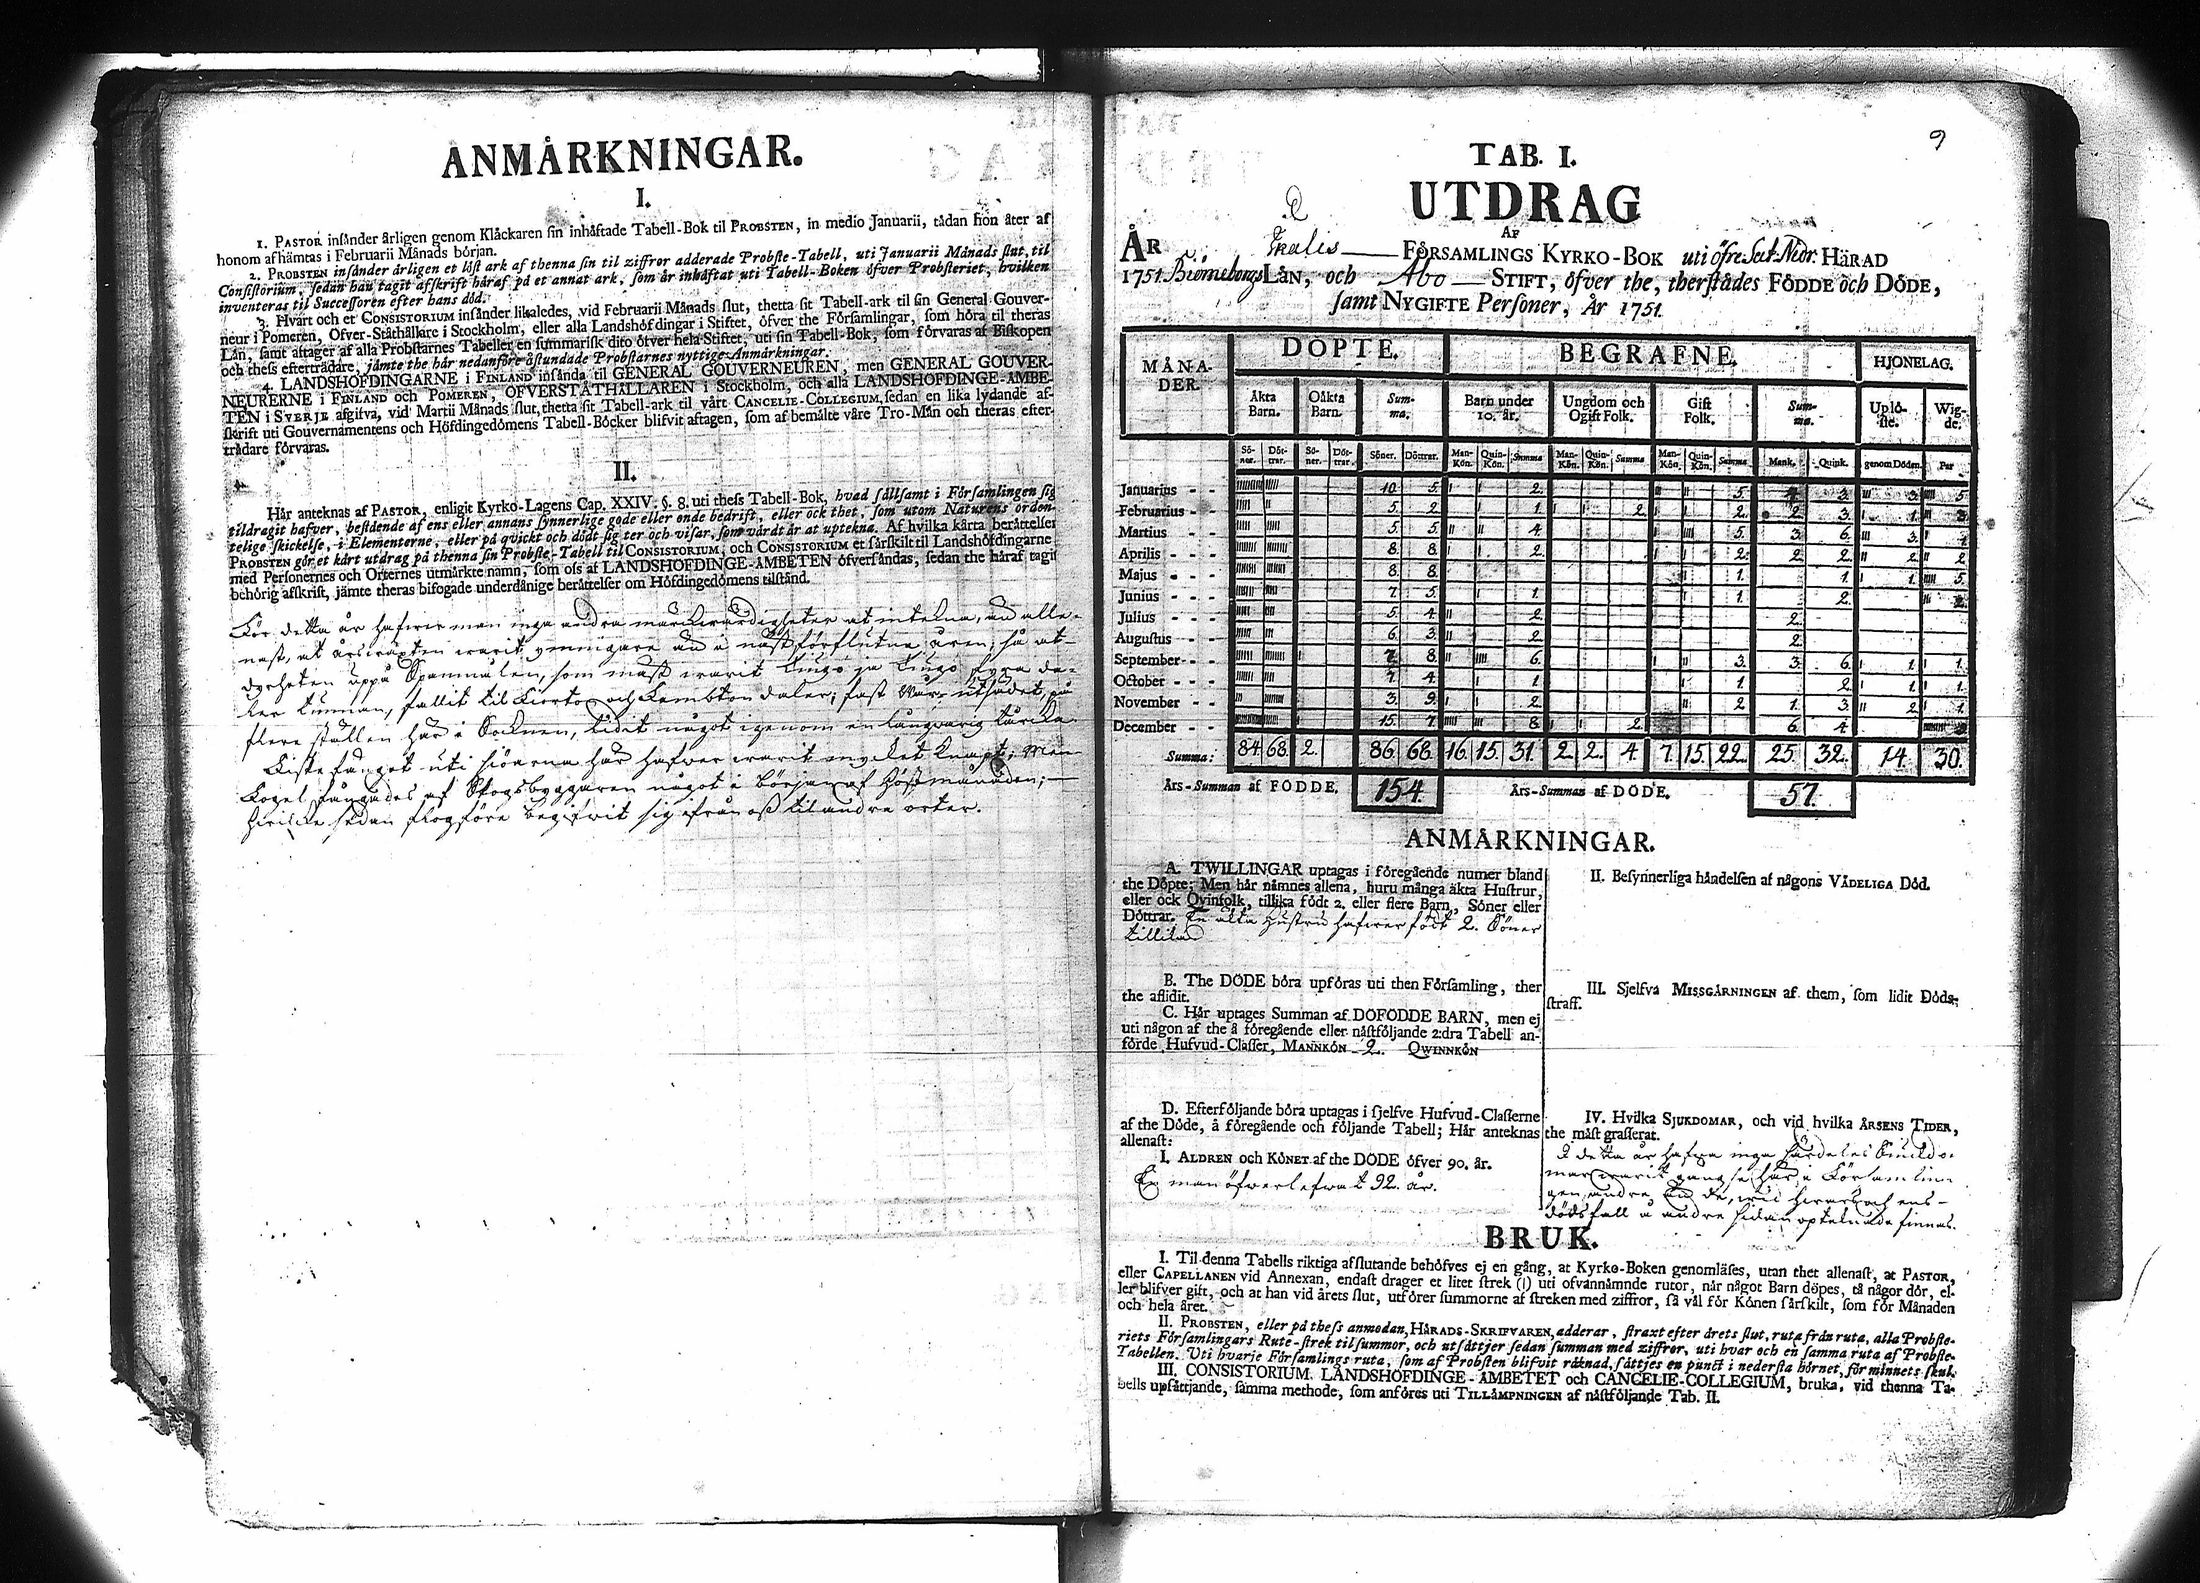 ANMÅRKNINGAR.
I.
1. PASTOR insånder årligen genom Klåckaren sin inhåftade Tabell-Bok til PROBSTEN, in medio Januarii, tådan hon åter af
honom afhämtas i Februarii Månads början.
2. PROBSTEN insånder årligen et löst ark af thenna sin til ziffror adderade Probste-Tabell, uti Januarii Månads slut, til
Consistorium, sedan han tagit afskrift häraf på et annat ark, som år inhåftat uti Tabell-Boken öfver Probsteriet, hvilken
inventeras til Successoren efter hans död.
3. Hvart och et CONSISTORIUM insånder likaledes, vid Februarii Månads slut, thetta sit Tabell-ark til sin General Gouver-
neur i Pomeren, Öfver-Ståthållare i Stockholm, eller alla Landshöfdingar i Stiftet, öfver the Församlingar, som höra til theras
Lån, samt aftager af alla Probstarnes Tabeller en summarisk dito öfver hela Stiftet, uti sin Tabell-Bok, som förvaras af Biskopen
och thess efterträdare, jämte the här nedanföre åstundade Probstarnes nyttige Anmärkningar.
4. LANDSHÖFDINGARNE i FINLAND insånda til GENERAL GOUVERNEUREN, men GENERAL GOUVER-
NEURERNE i FINLAND och POMEREN, ÖFVERSTÅTHÅLLAREN i Stockholm, och alla LANDSHÖFDINGE-ÄMBE-
TEN i SVERJE afgifva, vid Martii Månads slut, thetta sit Tabell-ark til vårt CANCELIE-COLLEGIUM, sedan en lika lydande af-
skrift uti Gouvernamentens och Höfdingedömens Tabell-Böcker blifvit aftagen, som af bemålte våre Tro-Mån och theras efter-
trådare förvaras.
II.
Här anteknas af PASTOR, enligit Kyrko-Lagens Cap. XXIV. §. 8. uti thess Tabell-Bok, hvad sållsamt i Församlingen sig
tildragit hafver, bestående af ens eller annans synnerlige gode eller onde bedrift, eller ock thet, som utom Naturens orden-
telige skickelse, i Elementerne, eller på qvickt och dödt sig ter och visar, som vårdt år at uptekna. Af hvilka kårta beråttelser
PROBSTEN gör et kårt utdrag på thenna sin Probste-Tabell til CONSISTORIUM, och CONSISTORIUM et sårskilt til Landshöfdingarne
med Personernes och Orternes utmårkte namn, som oss af LANDSHÖFDINGE-ÄMBETEN öfversåndas, sedan the håraf tagit
behörig afskrift, jämte theras bifogade underdånige beråttelser om Höfdingedömens tilstånd.
För detta år hafwer man inga andra märckwärdigheter at intekna, än alle-
nast, at årswäxten warit ymnigare än i näst förflutne åren; så at
dyrheten uppå Spanmålen, som mäst warit tiugo ja tiugo fyra da-
ler tunnan, fallit til fiorton och femton daler; fast Wår-utsädet på
flere ställen här i Socknen, lidit något igenom en långwarig tårcka.
Fiske fånget uti siöarna här hafwer warit mycket knapt; Men
Fogel fångades af Skogsbyggaren något i början af Höstmånaden;
hwilcke sedan flogföre begifwit sig ifrån oss til andre orter.
9
TAB. I.
UTDRAG
AF
ÅR Ikalis FÖRSAMLINGS KYRKO-BOK uti öfre Sat. Nedr. HÄRAD
1751. Biörneborgs LÅN, och Åbo STIFT, öfver the, therstådes FÖDDE och DÖDE,
samt NYGIFTE Personer, År 1751.
MÅNA-DER. DÖPTE. BEGRAFNE. HJONELAG.
Äkta Barn. Oåkta Barn. Summa. Barn under 10. år. Ungdom och Ogift Folk. Gift Folk. Summa. Uplö-ste. Wig-de.
Sö-ner. Döt-trar. Sö-ner. Döt-trar. Söner. Döttrar. Man-Kön. Quin-Kön. Summa Man-Kön. Quin-Kön. Summa Man-Kön. Quin-Kön. Summa Mank. Quink. genom Döden. Par
Januarius - - 10 5. 2. 5. 4 3. 3. 5
Februarius - - 5 2 1. 2 2. 2 3. 1. 3
Martius - - 5 5. 4. 5. 3. 6. 3. 1
Aprilis - - 8 8 2. 2. 2. 2. 2 2
Majus - - 8. 8. 1. 1. 1. 5
Junius - - 7 5. 1. 1. 2. 2
Julius - - 5 4. 2. 2.
Augustus - - 6 3. 2. 2.
September - - 7 8. 6. 3. 3. 6. 1. 1.
October - - 7 4. 1. 1. 2. 1. 1.
November - - 3 9. 2. 2 1. 3 2. 1
December - - 15. 7. 8. 2. 6. 4.
Summa: 84. 68. 2. 86. 68. 16. 15. 31. 2. 2. 4. 7. 15. 22. 25. 32. 14. 30.
Års-Summan af FÖDDE. 154. Års-Summan af DÖDE. 57.
ANMÅRKNINGAR.
A. TWILLINGAR uptagas i föregående numer bland
the Döpte; Men hår nåmnes allena, huru många åkta Hustrur,
eller ock Qvinfolk, tillika födt 2. eller flere Barn, Söner eller
Döttrar. En äkta Hustru hafwer födt 2. Söner
tillika
B. The DÖDE böra upföras uti then Församling, ther
the aflidit.
C. Hår uptages Summan af DÖFÖDDE BARN, men ej
uti någon af the å föregående eller nåstföljande 2:dra Tabell an-
förde Hufvud-Classer, MANNKÖN 2. QWINNKÖN
D. Efterföljande böra uptagas i sjelfve Hufvud-Classerne
af the Döde, å föregående och följande Tabell; Hår anteknas
allenast:
I. ALDREN och KÖNET af the DÖDE öfver 90. år.
En man öfwerlefwat 92. år.
II. Besynnerliga håndelsen af någons VÅDELIGA Död.
III. Sjelfva MISSGÅRNINGEN af them, som lidit Döds-
straff.
IV. Hvilka SJUKDOMAR, och vid hvilka ÅRSENS TIDER,
the måst grasserat.
I detta år hafwa inga särdeles Siukdo-
mar warit gängse här i Församlin-
gen, andre än de, wid hwars och ens
dödsfall å andre sidan optecknade finnas.
BRUK.
I. Til denna Tabells riktiga afslutande behöfves ej en gång, at Kyrko-Boken genomläses, utan thet allenast, at PASTOR,
eller CAPELLANEN vid Annexan, endast drager et litet strek (|) uti ofvannåmnde rutor, når något Barn döpes, tå någor dör, el-
ler blifver gift, och at han vid årets slut, utförer summorne af streken med ziffror, så vål för Könen sårskilt, som för Månaden
och hela året.
II. PROBSTEN, eller på thess anmodan, HÅRADS-SKRIFVAREN, adderar, straxt efter årets slut, ruta från ruta, alla Probste-
riets Församlingars Rute-strek til summor, och utsåttjer sedan summan med ziffror, uti hvar och en samma ruta af Probste-
Tabellen. Uti hvarje Församlings ruta, som af Probsten blifvit råknad, såttjes en punct i nedersta hörnet, för minnets skul.
III. CONSISTORIUM, LANDSHÖFDINGE-ÄMBETET och CANCELIE-COLLEGIUM, bruka, vid thenna Ta-
bells upsåttjande, samma methode, som anföres uti TILLÅMPNINGEN af nåstföljande Tab. II.